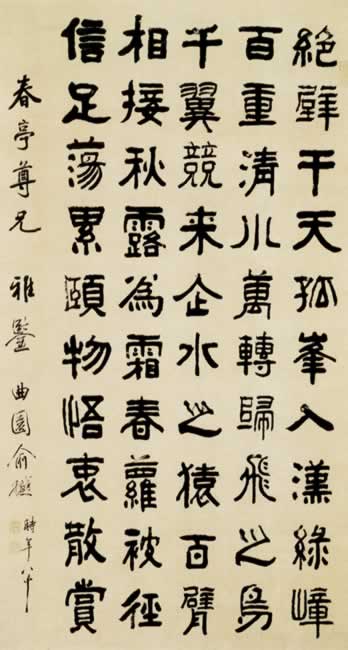 絕壁干天孤峯入漢綠嶂
百重清川萬轉歸飛之鳥
千翼競来企水之猿百臂
相接秋露為霜春蘿被徑
信足蕩累頤物悟衷散賞
春亭尊兄 雅鑒 曲園俞樾 時年八十